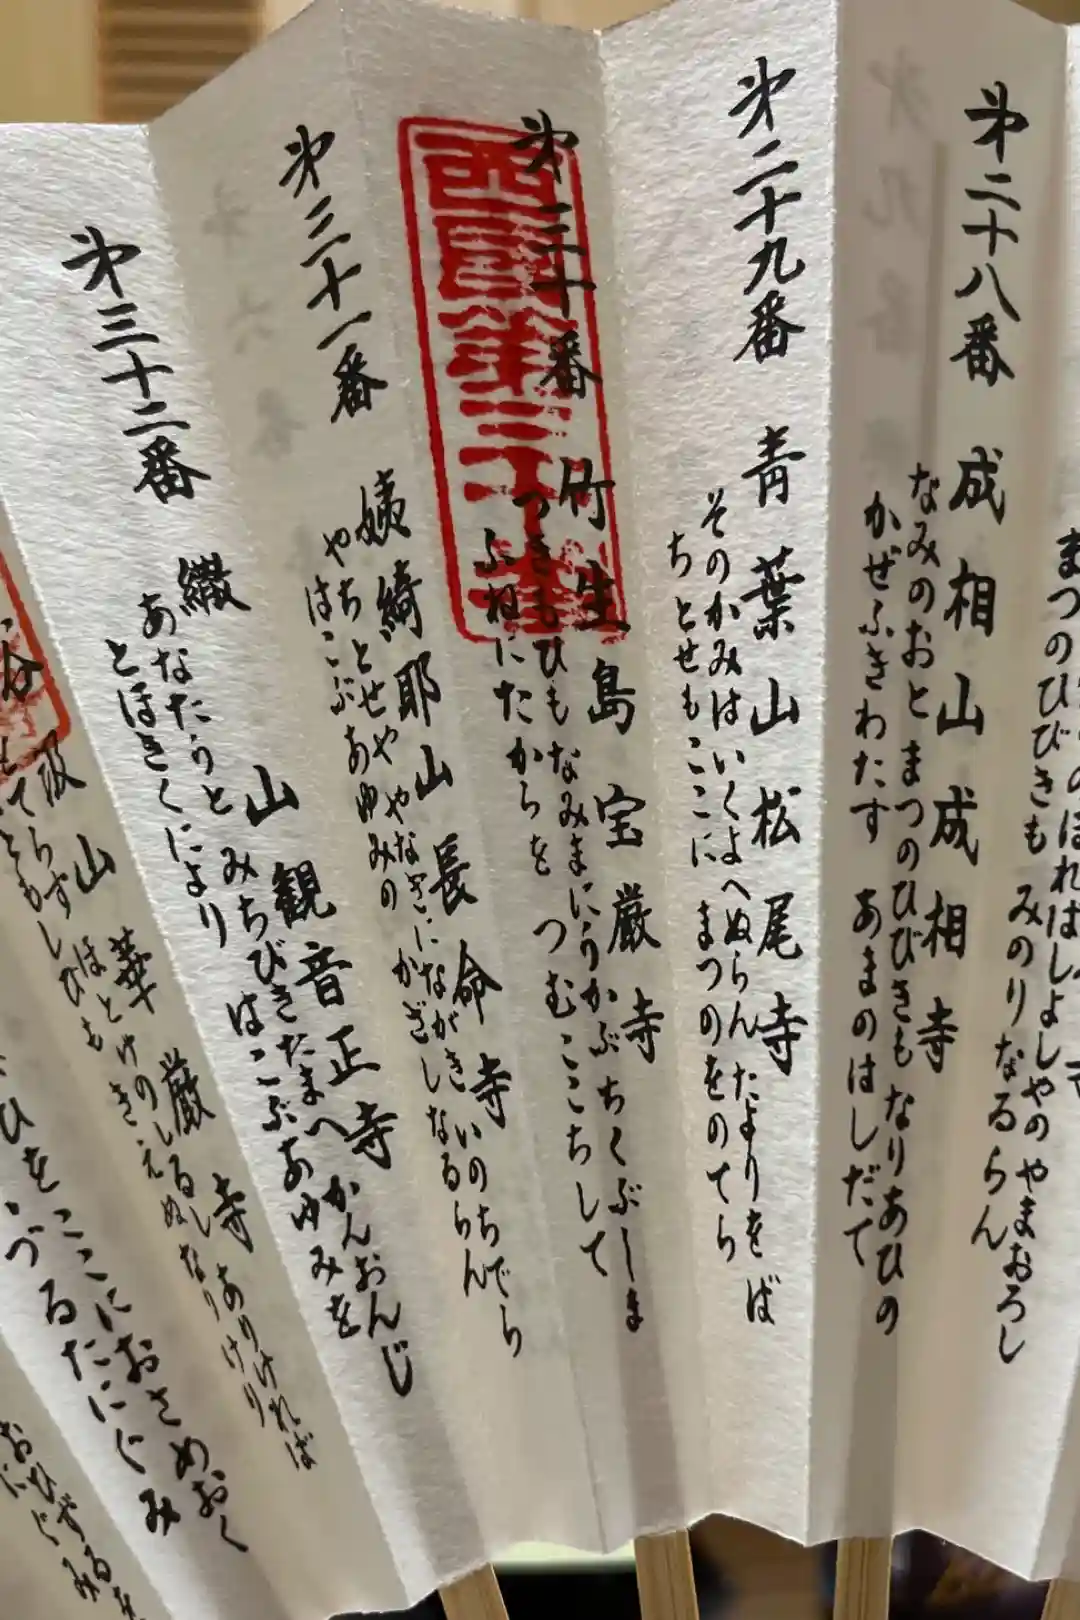 まつのひびきも みのりなるらん
第二十八番 成相山成相寺
なみのおと まつのひびきも なりあひの
かぜふきわたす あまのはしだて
第二十九番 青葉山松尾寺
そのかみは いくよへぬらん たよりをば
ちとせもここに まつのをのてら
第三十番 竹生島宝厳寺
つきもひも なみまにうかぶ ちくぶしま
ふねにたからを つむここちして
西国第三十
第三十一番 姨綺耶山長命寺
やちとせや やなぎにながき いのちでら
はこぶあゆみの かざしなるらん
第三十二番 繖山観音正寺
あなたうと みちびきたまへ かんおんじ
とほきくにより はこぶあゆみを
谷汲山華厳寺
ほとけのしるし ありければ
ともしびも きえぬなりけり
ここにおさめおく